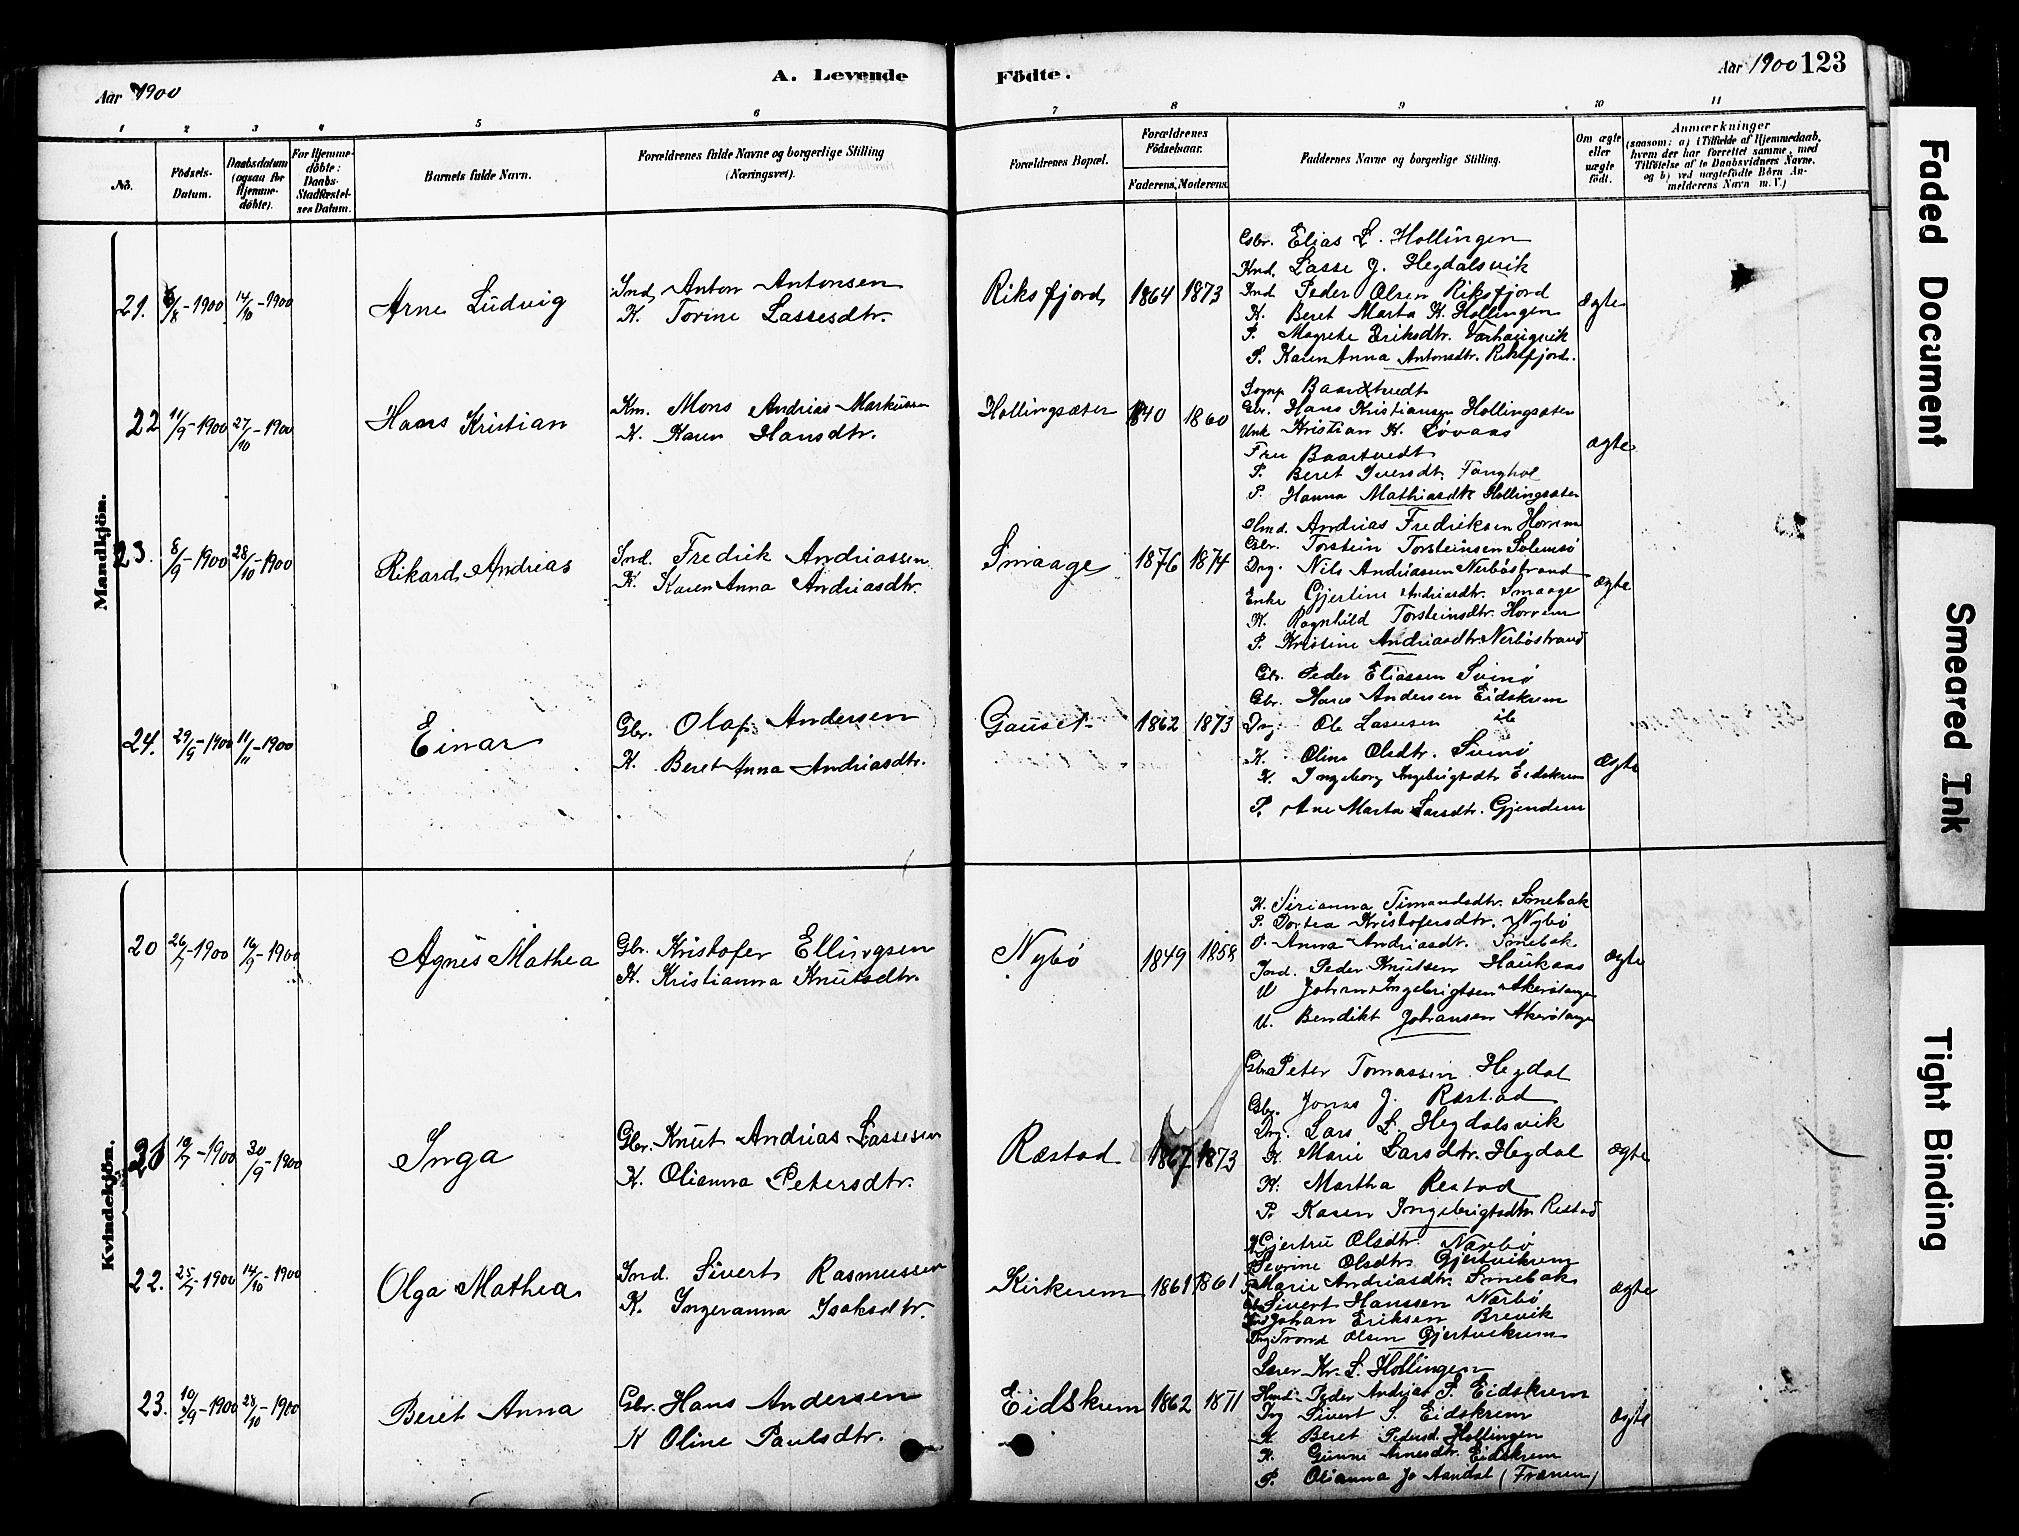 Aar 1900
A. Levende
Födte.
Aar 1900 123
1 2 3 4 5 6 7 8 9 10 11
No.
Födsels-
Datum.
Daabsdatum
(ogsaa for
Hjemme-
döbte).
For Hjemme-
döbte:
Daabs-
Stadfæstel-
ses Datum.
Barnets fulde Navn.
Forældrenes fulde Navne og borgerlige Stilling
(Næringsvei).
Forældrenes Bopæl.
Forældrenes
Födselsaar.
Faderens. Moderens.
Faddernes Navne og borgerlige Stilling.
Om ægte
eller
uægte
født.
Anmærkninger
(saasom: a) i Tilfælde af Hjemmedaab,
hvem der har forrettet samme, med
Tilföielse af to Daabsvidners Navne,
og b) ved uægtefödte Börn An-
melderens Navn m. V.)
Mandkjön.
21. /8-1900 14/10-1900
Arne Ludvig
Ind. Anton Antonsen
K. Torine Lassesdtr.
Riksfjord 1864 1873
Gbr. Elias L. Hollingen
Knd. Lasse J. Hegdalsvik
Ind Peder Olsen Riksfjord
K. Beret Marta K. Hollingen
P. Magrete Eriksdtr. Varhaugvik
P. Karen Anna Antonsdtr. Riksfjord.
ægte
22 11/9-1900 27/10-1900
Hans Kristian
Km. Mons Andrias Markussen
K. Karen Hansdtr.
Hollingsæter 1840 1860
Sognp Baardtvedt
Gbr. Hans Kristiansen Hollingsæter
Unk Kristian K. Løvaas
Fru Baartvedt
P. Beret Iversdt. Tanghol
P. Hanna Mathiasdtr Hollingsæter
ægte
23. 8/9-1900 28/10-1900
Rikard Andreas
Ind. Fredrik Andriassen
K. Karen Anna Andriasdtr.
Smaage 1876 1874
Andrias Fredriksen Horrem
Gbr. Torstein Torsteinsen Solemsø
Drg. Nils Andriassen Nerbøstrand
Enke Gjertine Andriasdtr. Smaage
K. Ragnhild Torsteinsdtr. Horrem
P. Kristine Andriasdtr Nerbøstrand
ægte
24. 29/9-1900 11/11-1900
Einar
Gbr. Olaf Andersen
K. Beret Anna Andriasdtr.
Gauset 1862 1873
Gbr. Peder Eliassen Svinø
Gbr. Hans Andersen Eidskrem
Drg Ole Lassesen ib
K. Oline Olsdtr. Svinø
K. Ingeborg Ingebrigtsdtr Eidskrem
P. Ane Marta Larsdtr. Gjendem
ægte
Kvindekjön.
20 26/7-1900 16/9-1900
Agnes Mathea
Gbr. Kristofer Ellingsen
K. Kristianna Knutsdtr.
Nybö 1849 1858
K. Sirianna Timandsdtr. Smebak
P. Dortea Kristofersdtr. Nybø
P. Anna Andriasdt. Smebak
Ind. Peder Knutsen Haukaas
U Johan Ingebrigtsen Akerøtangen
U. Bendikt Johansen Akerøtangen
ægte
21 19/7-1900 30/9-1900
Inga
Gbr. Knut Andrias Lassesen
K. Olianna Petersdtr.
Ræstad 1867 1873
Gbr Peter Tomassen Hegdal
Gbr. Jonas J. Ræstad
Drg. Lars L. Hegdalsvik
K. Marie Larsdtr. Hegdal
K. Martha Restad
P. Karen Ingebrigtsdtr Restad
ægte
22. 25/7-1900 14/10-1900
Olga Mathea
Ind. Sivert Rasmussen
K. Ingeranna Isaksdtr.
Kirkerem 1861 1861
K Gjertru Olsdtr. Nærbø
Sevrine Olsdtr. Gjertvikrem
Marie Andriasdtr. Smebak
Sivert Hanssen Nærbø
Johan Eriksen Brevik
Trond Olsen Gjertvikrem
ægte
23. 10/9-1900 28/10-1900
Beret Anna
Gbr. Hans Andersen
K Oline Paulsdtr.
Eidskrem 1862 1871
Lærer Kr. L. Hollingen
Peder Andrias S. Eidskrem
Sivert S. Eidskrem
K Beret Pedersd. Hollingen
K. Gunni Arnesdtr. Eidskrem
P. Olianna Jo Aandal (Frænen)
ægte
Faded Document
Smeared Ink
Tight Binding